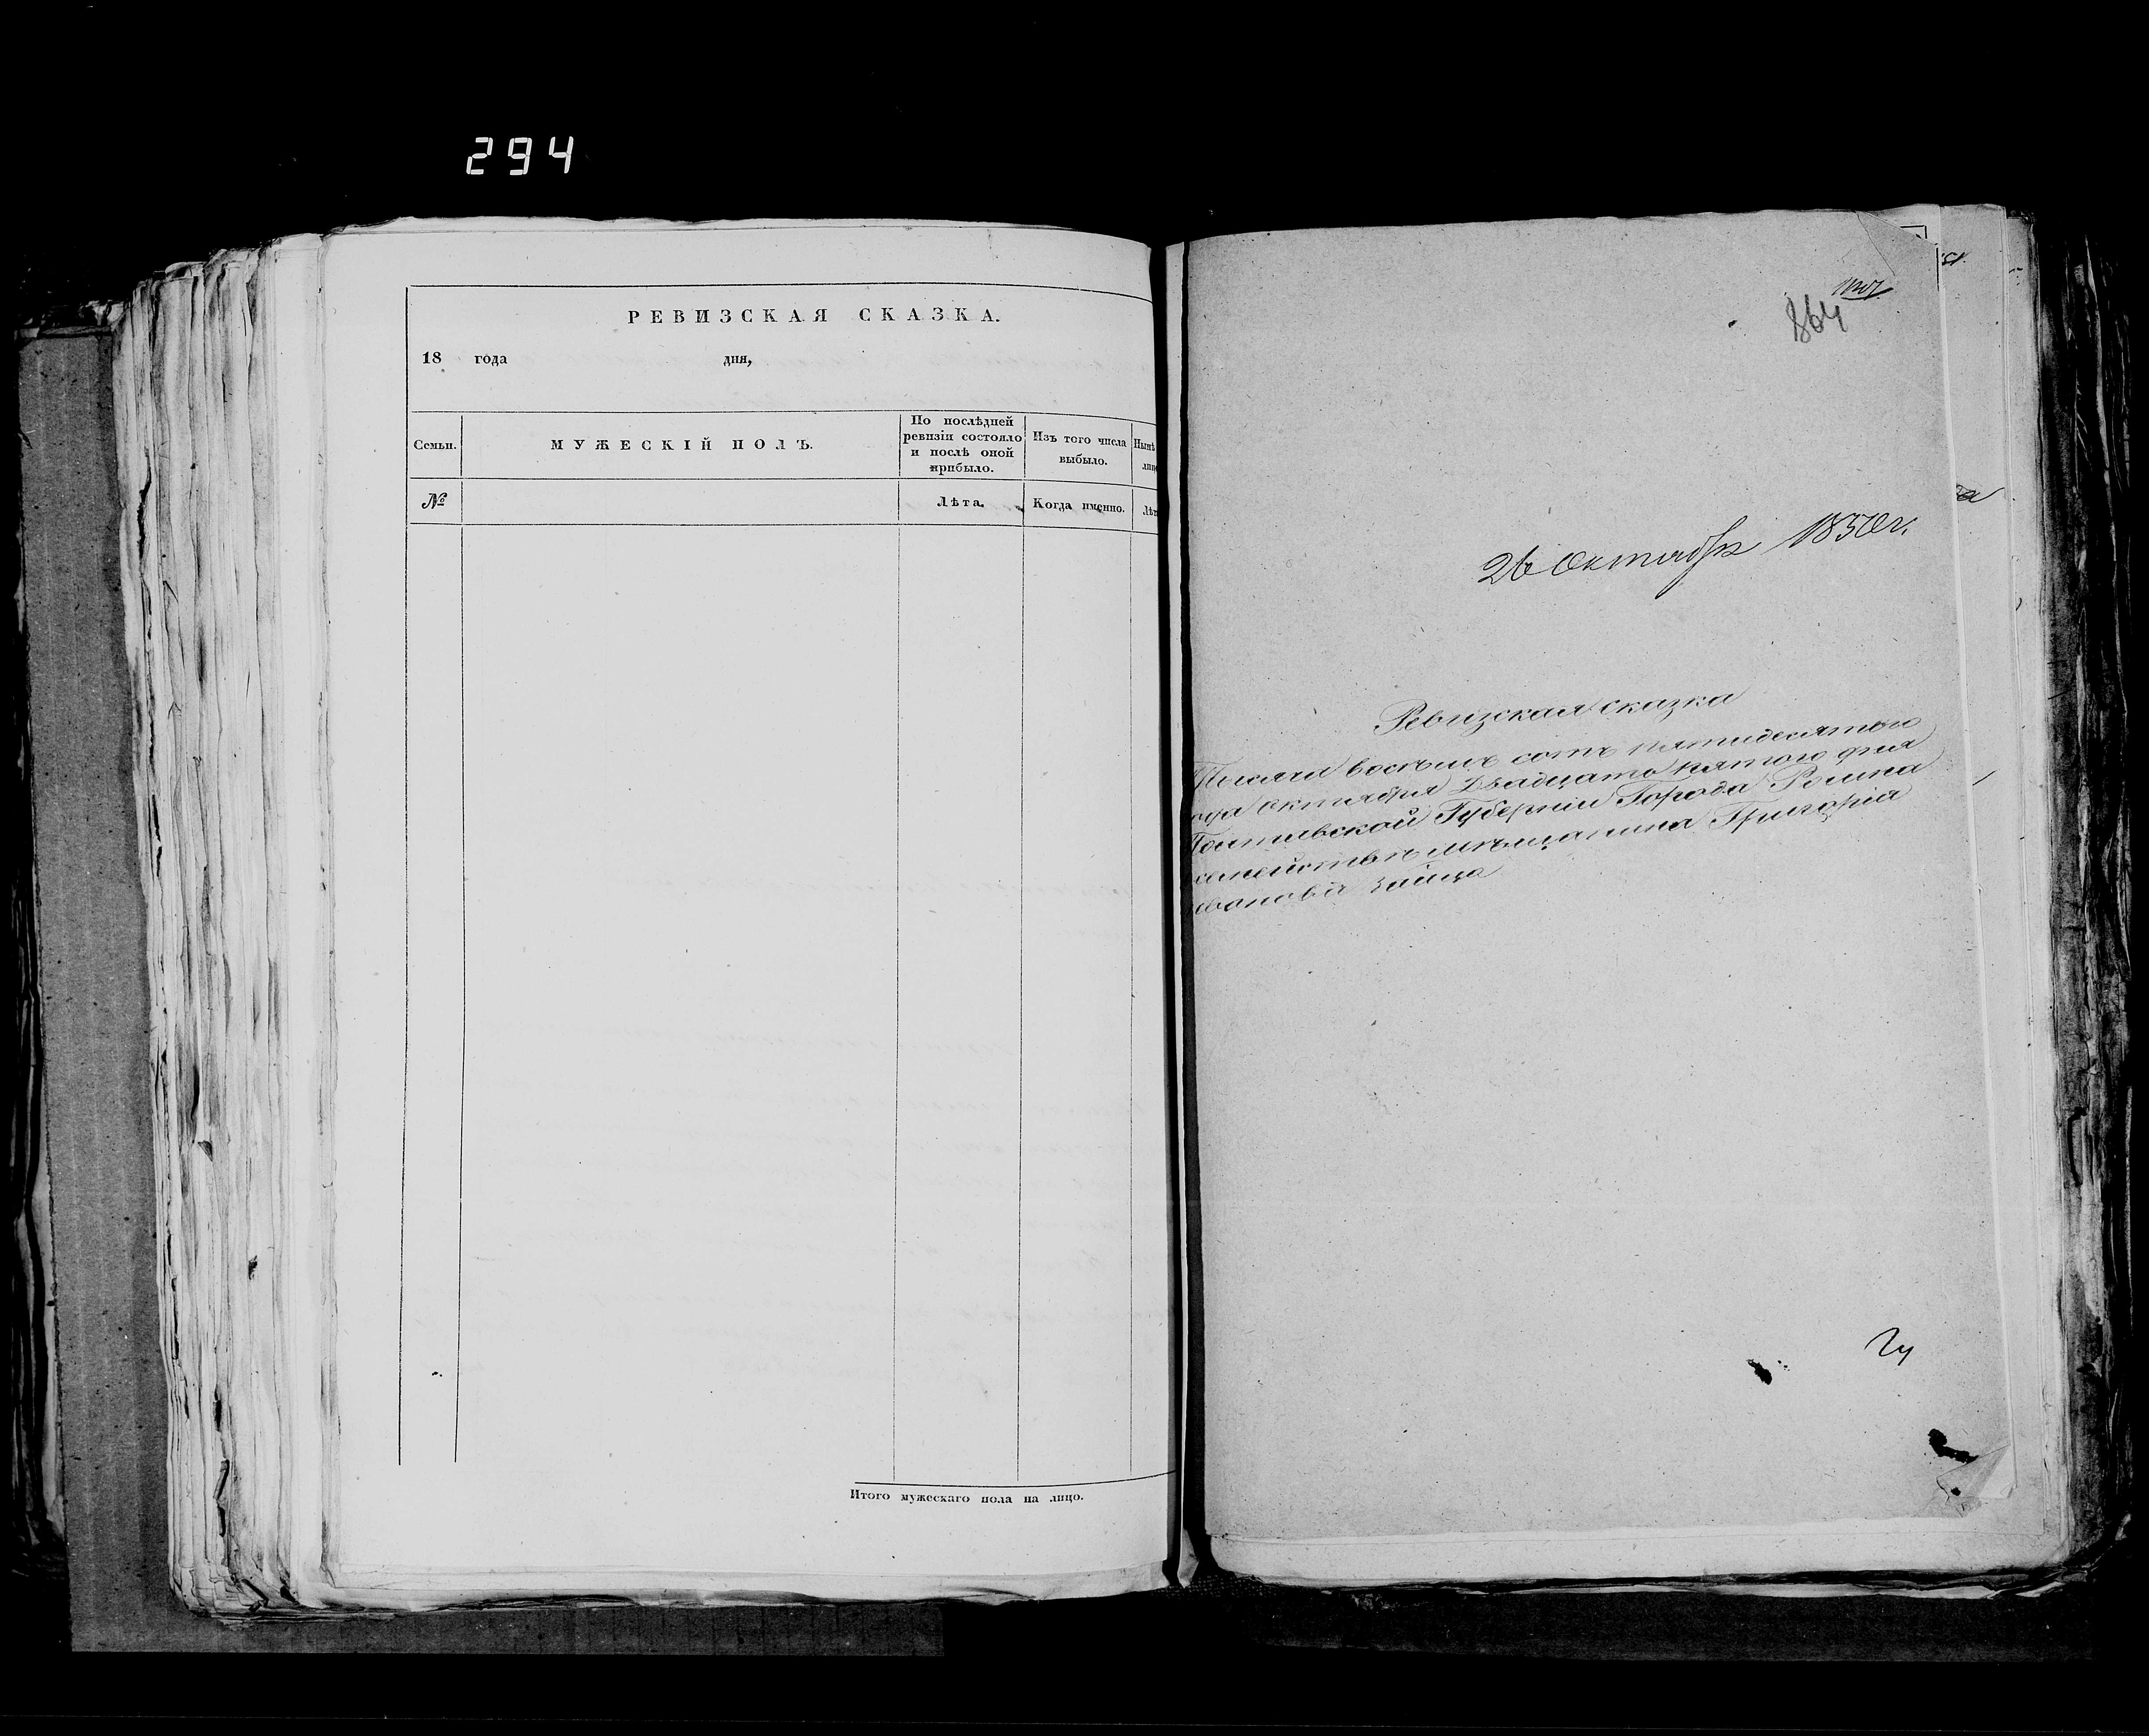 294
РЕВИЗСКАЯ СКАЗКА.
18 года дня,
Семьи.
МУЖЕСКІЙ ПОЛЪ.
По послѣдней
ревизіи состояло
и послѣ оной
прибыло.
Изъ того числа
выбыло.
Нынѣ
лицо
№
Лѣта.
Когда именно.
Лѣт
Итого мужескаго пола на лицо.
864
26 Октября 1850 г.
Ревизская сказка
Тысяча восѣмъ сотъ пятидесятого
ода Октября Двадцать пятого дня
Полтавской Губерніи Города Ромна
семействѣ мѣщанина Григорія
Зайца